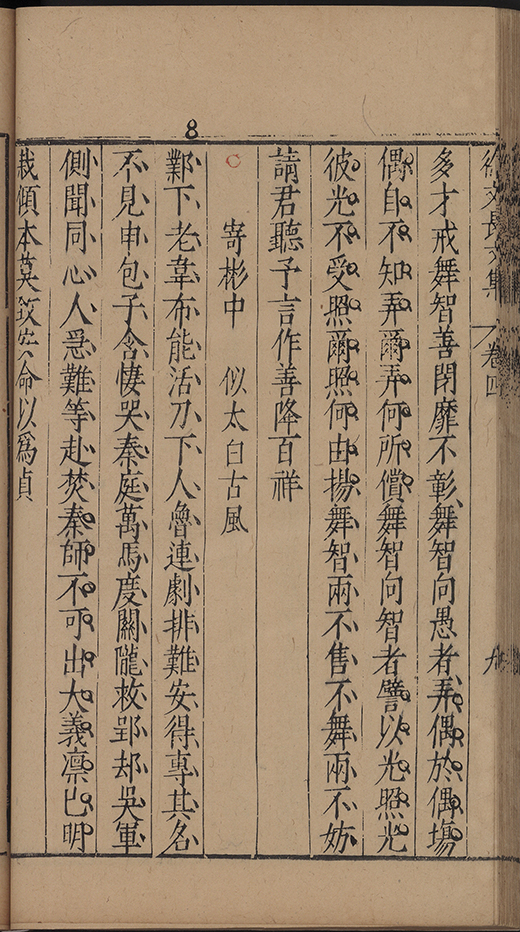 徐文長文集 卷四 九
多才戒舞智善閉靡不彰舞智向愚者弄偶於偶場
偶自不知弄爾弄何所償舞智向智者譬以光照光
彼光不受照爾照何由揚舞智兩不售不舞兩不妨
請君聽予言作善降百祥
寄彬中 似太白古風
鄴下老韋布能活刀下人魯連劇排難安得專其名
不見申包子含悽哭秦庭萬馬度關隴救郢却吳軍
側聞同心人急難等赴焚秦師不可出大義凛已明
栽傾本莫致 命以為貞
8